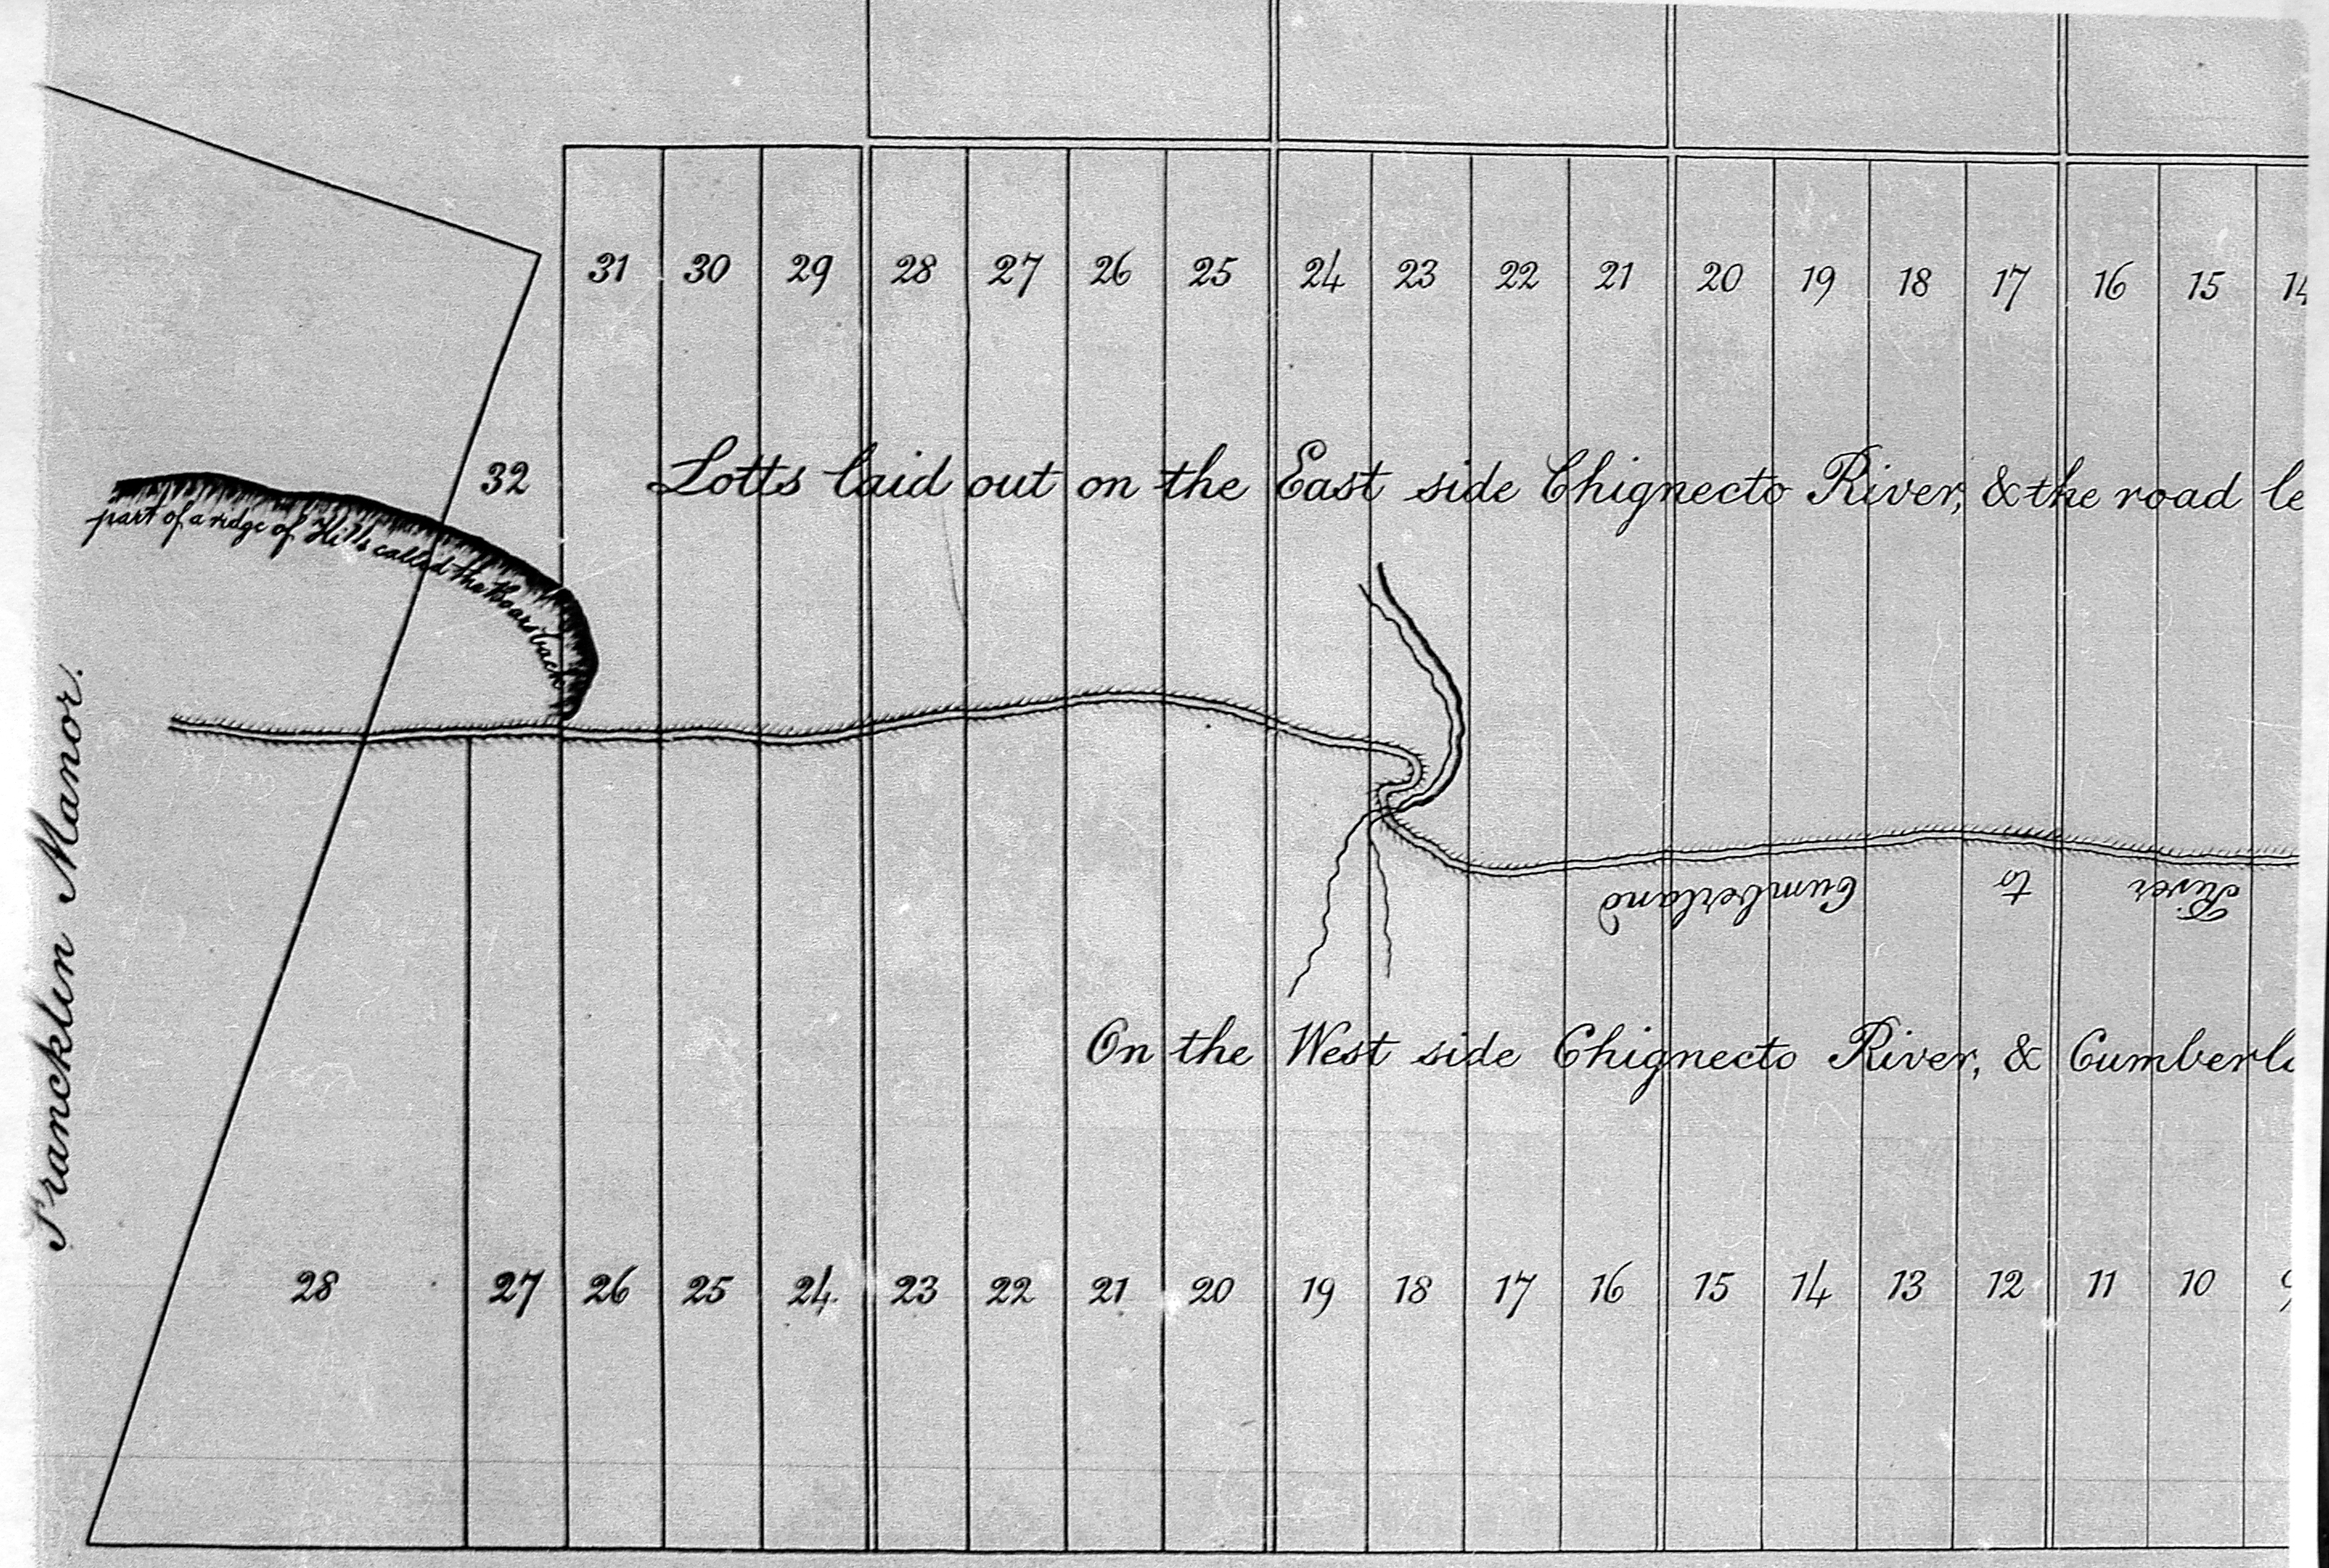 31 30 29 28 27 26 25 24 23 22 21 20 19 18 17 16 15 14
32
Lotts laid out on the East side Chignecto River, & the road le
part of a ridge of Hills called the Boars back
Francklin Manor.
River to Cumberland
On the West side Chignecto River, & Cumberla
28 27 26 25 24 23 22 21 20 19 18 17 16 15 14 13 12 11 10 9